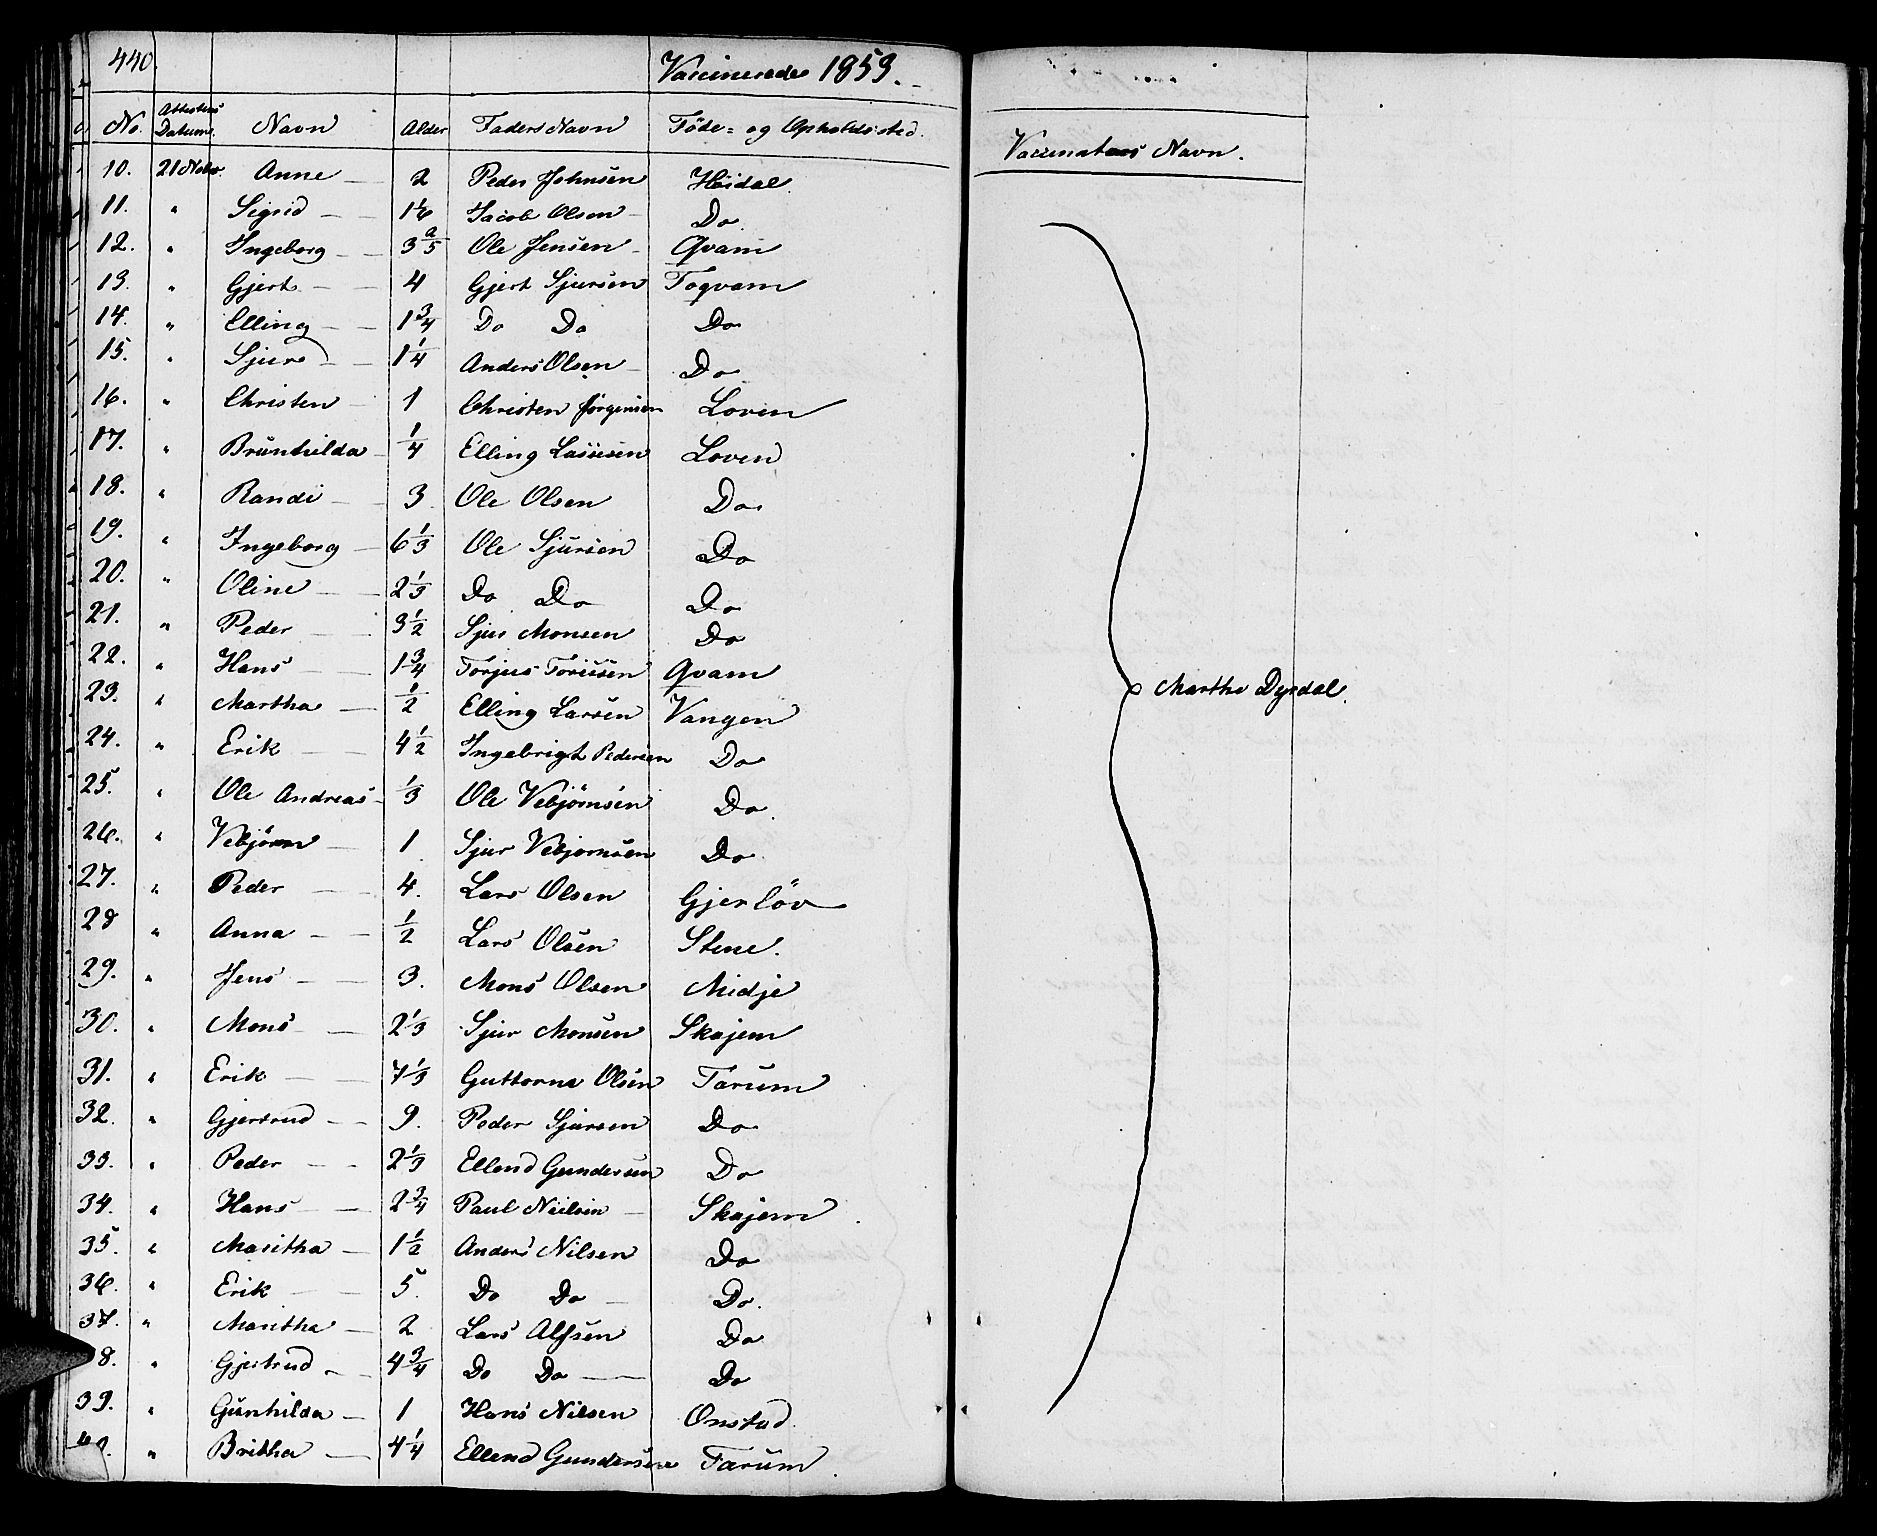 440. Vaccinerede 1853.
No. Attestens Datum. Navn Alder Faders Navn Føde= og Opholdssted.
Vaccinateurs Navn.
10. 21 Nobr. Anne — 2 Peder Johnsen Høidal.
11. " Sigrid — 1 1/6 Jacob Olsen — Do
12. " Ingeborg — 3 2/5 Ole Jensen — Qvam
13. " Gjert — 4 Gjert Sjursen Toqvam
14. " Elling — 1 3/4 Do Do Do
15. " Sjur — 1 1/4 Anders Olsen — Do
16. " Christen — 1 Christen Jørgensen Loven
17. " Brünhilda — 1/4 Elling Lassesen Loven
18. " Randi — 3 Ole Olsen Do
19. " Ingeborg — 6 1/3 Ole Sjursen Do
20. " Oline — 2 1/3 Do Do Do
21. " Peder — 3 1/2 Sjur Monsen Do
22. " Hans — 1 3/4 Torjus Qvam
23. " Martha — 1/2 Elling Larsen Vangen
Marthe Dyrdal.
24. " Erik — 4 1/2 Ingebrigt Pedersen Do
25. " Ole Andreas — 1/3 Ole Vebjørnsen Do.
26. " Vebjørn — 1 Sjur Vebjørnsen Do
27. " Peder — 4. Lars Olsen Gjerløv
28 " Anna — 1/2 Lars Olsen Stene.
29. " Jens — 3. Mons Olsen Midje
30. " Mons — 2 1/3 Sjur Monsen Skajem
31. " Erik — 7 1/3 Guttorm Olsen Farum
32. " Gjertrud — 9. Peder Sjursen Do
33. " Peder — 2 1/3 Ellend Gundersen Do
34. " Hans — 2 3/4 Paul Nielsen — Skajem.
35. " Maritha — 1 1/2 Anders Nilsen Do
36. " Erik — 5. Do Do — Do.
37. " Maritha — 2 Lars Alfsen Do
38. " Gjertrud — 4 3/4 Do Do — Do
39. " Günhilda — 1 Hans Nilsen Onstad.
40. " Britha — 4 1/4 Ellend Gundersen Farum.